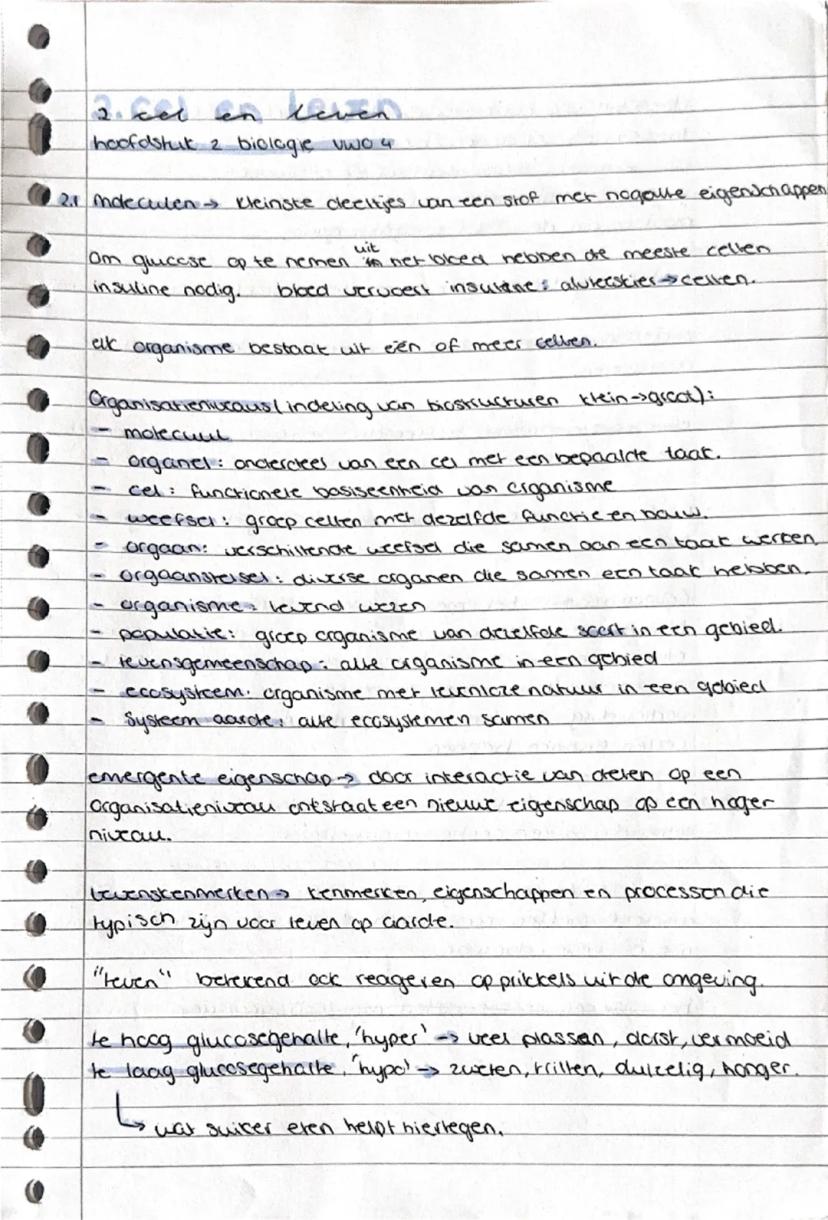 2. cel en leven
hoofdstuk 2 biologie vwo 4
2.1 moleculen → kleinste deeltjes van een stof met nog alle eigenschappen
Om glucose op te nemen uit het bloed hebben de meeste cellen
insuline nodig. bloed vervoert insuline: alvleesklier → cellen.
elk organisme bestaat uit eén of meer cellen.
Organisatieniveaus (indeling van biostructuren klein → groot):
- molecuul
- organel: onderdeel van een cel met een bepaalde taak.
- cel: functionele basiseenheid van organisme
- weefsel: groep cellen met dezelfde functie en bouw.
- orgaan: verschillende weefsel die samen aan een taak werken
- orgaanstelsel: diverse organen die samen een taak hebben.
- organisme: levend wezen
- populatie: groep organisme van dezelfde soort in een gebied.
- levensgemeenschap: alle organisme in een gebied
- ecosysteem: organisme met levenloze natuur in een gebied
- Systeem aarde: alle ecosystemen samen
emergente eigenschap → door interactie van delen op een
organisatieniveau ontstaat een nieuwe eigenschap op een hoger
niveau.
levenskenmerken → kenmerken, eigenschappen en processen die
typisch zijn voor leven op aarde.
"leven" betekend ook reageren op prikkels uit de omgeving.
te hoog glucosegehalte, 'hyper' → veel plassen, dorst, vermoeid
te laag glucosegehalte, 'hypo' → zweten, trillen, duizelig, honger.
↳ wat suiker eten helpt hiertegen.